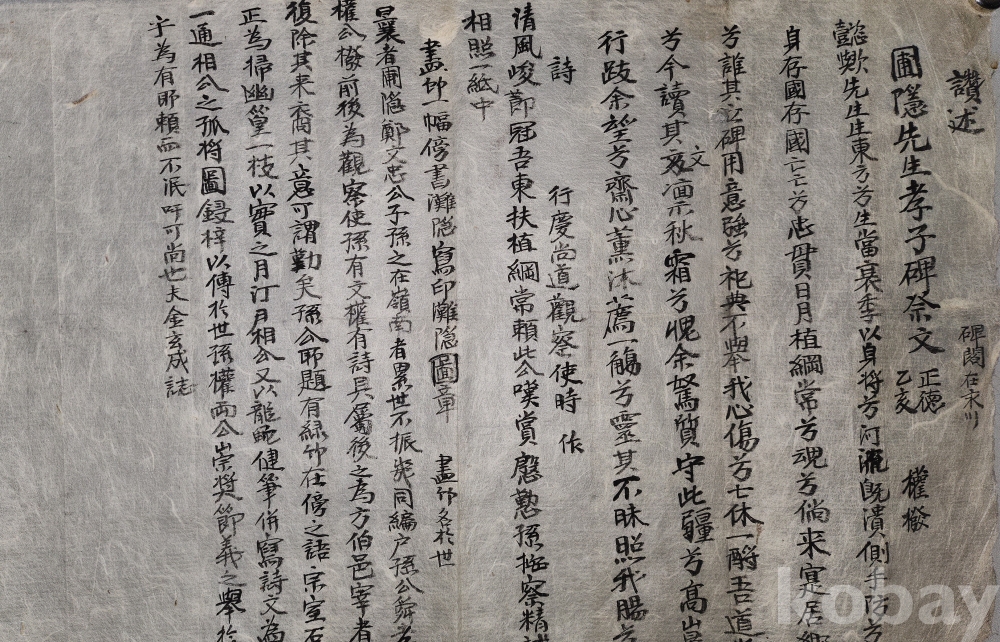 讚述
圃隱先生孝子碑祭文 正德乙亥 權撥
碑閣在永川
懿歟先生生東方兮生當衰季以身将兮河流旣潰側手防兮
身存國存國亡亡兮忠貫日月植綱常兮魂兮倘来寔居
兮誰其立碑用意強兮祀典不擧我心傷兮亡休一酹吾道
兮今讀其文凛乎秋霜兮愧余駑質守此疆兮高
行跂余望兮齋心薰沐薦一觴兮靈其不昧照我膓兮
詩 行慶尚道觀察使時作
清風峻節冠吾東扶植綱常頼此公嘆賞慇懃孫 察精
相照一紙中
畫竹一幅傍書灘隱寫印灘隱圖章 畫竹名於世
曩者圃隱鄭文忠公子孫之在嶺南者累世不振 同編户孫公舜
權公撥前後為觀察使孫有文權有詩具屬後之為方伯邑宰者
復除其来裔其意可謂勤矣孫公所題有綠竹在傍之語宗室石
正為掃幽篁一枝以實之月汀尹相公又以龍 健筆併寫詩文為
一通相公之孤将圖鋟梓以傳於世孫權兩公崇奬節義之擧於
乎為有所頼而不泯吁可尚也夫金玄成誌
kobay